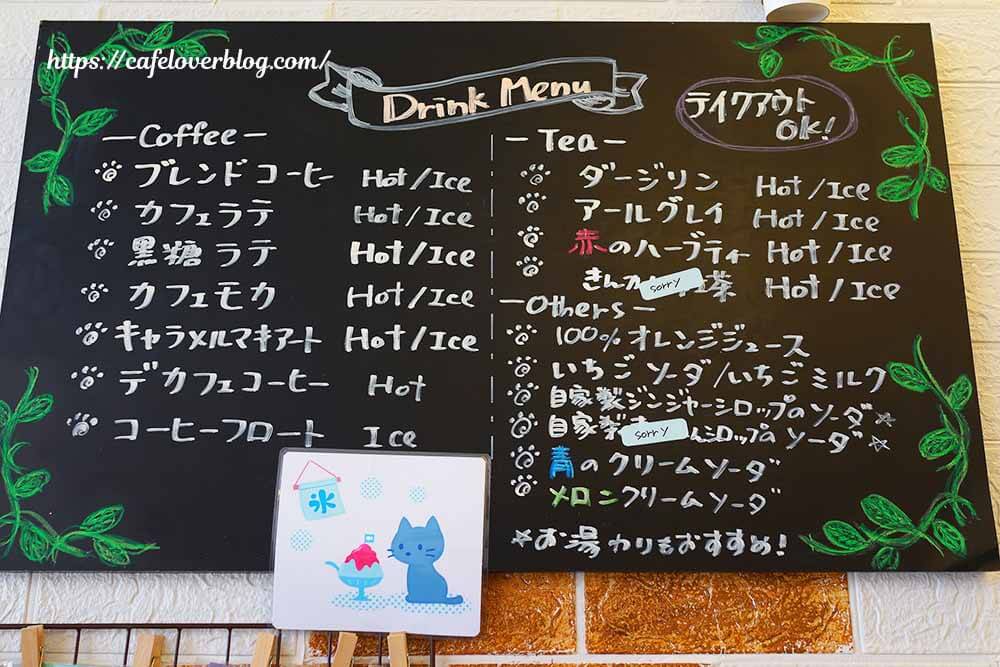 https://cafeloverblog.com/
Drink Menu
テイクアウト
OK!
ーCoffeeー
ブレンドコーヒー Hot/Ice
カフェラテ Hot/Ice
黒糖ラテ Hot/Ice
カフェモカ Hot/Ice
キャラメルマキアート Hot/Ice
デカフェコーヒー Hot
コーヒーフロート Ice
ーTeaー
ダージリン Hot/Ice
アールグレイ Hot/Ice
赤のハーブティー Hot/Ice
きんカ sorry 茶 Hot/Ice
ーOthersー
100%オレンジジュース
いちごソーダ/いちごミルク
自家製ジンジャーシロップのソーダ☆
自家製 sorry んシロップのソーダ☆
青のクリームソーダ
メロンクリームソーダ
☆お湯わりもおすすめ!
氷